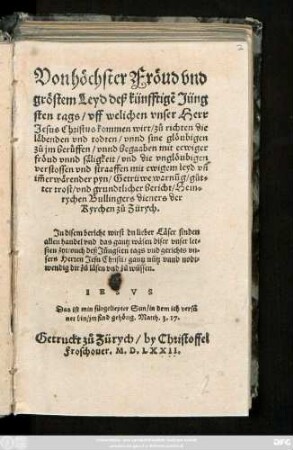 Von höchster Fröud vnd
gröstem Leyd deß künfftigē Jüng
sten tags / vff welichen vnser Herr
Jesus Christus kommen wirt / zů richten die
låbenden vnd todten / vnnd sine glöubigen
zů jm berüffen / vnnd begaaben mit eewiger
fröud vnnd såligkeit / vnd die vnglöubigen
verstossen vnd straaffen mit ewigem leyd vñ
jmerwårender pyn / Getrüwe warnūg / gůter
trost / vnd grundtlicher bericht / Heinrychen
Bullingers dieners der
Kyrchen zů Zürych.
In disem bericht wirst du lieber Låser finden
allen handel vnd das gantz wåsen diser vnser letsten
zyt / ouch deß Jüngsten tags vnd gerichts vnsers
Herren Jesu Christi / gantz nütz vnnd notwendig
der zů låsen vnd zů wüssen.
IESVS
Das ist min fürgeliepter Sun / in dem ich versů
net bin / jm sind gehörig. Matth. 3. 17.
Getruckt zů Zürych / by Christoffel
Froschouer. M. D. LXXII.